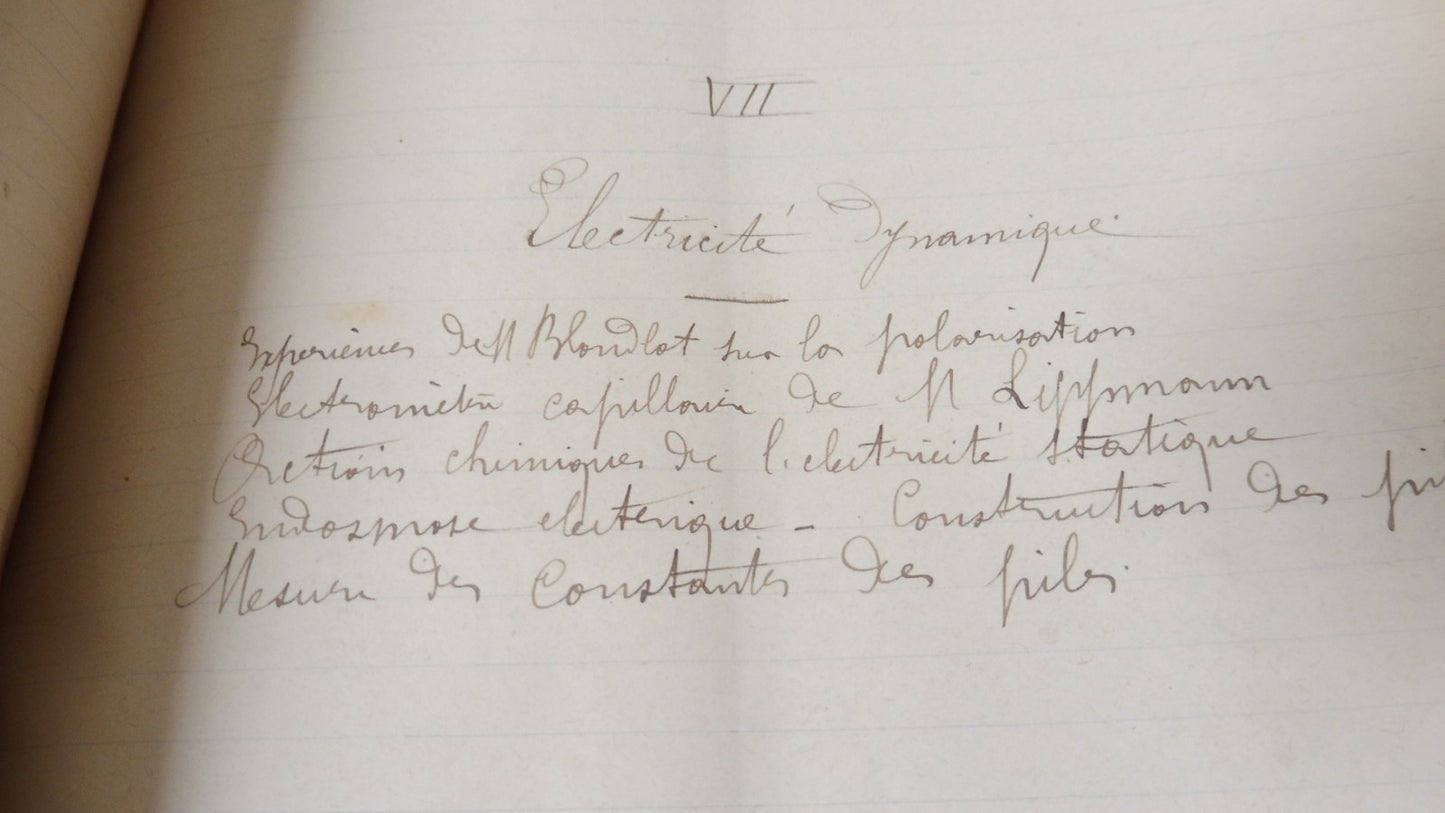 VII
Electricité Dynamique
Experiences de M Blondlot sur la polarisation
Electromètre capillaire de M Lippmann
Actions chimiques de l'electricité statique
Endosmose electrique - Construction des pi
Mesure des Constantes des piles.